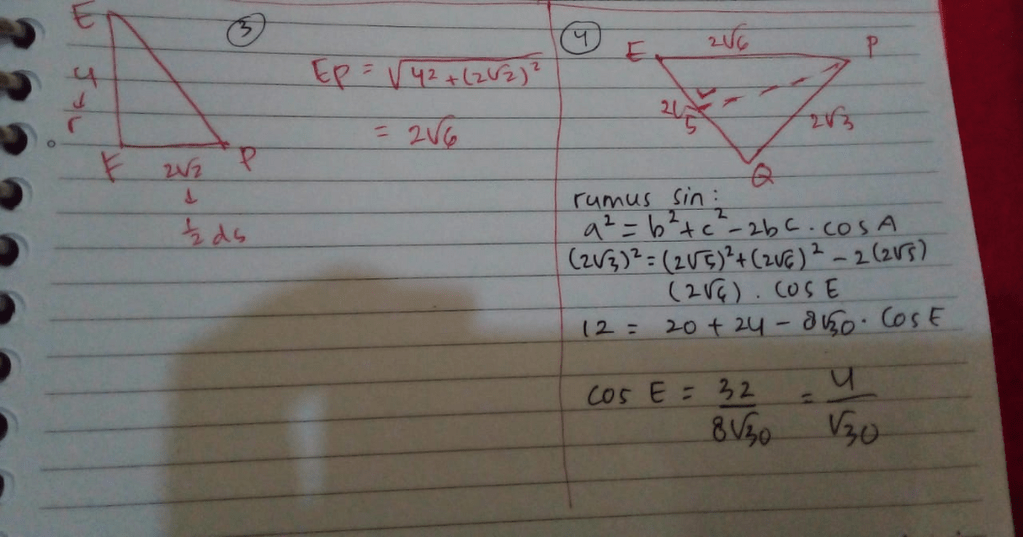 ③
E
4
↓
r
F
2√2
P
↓
½ ds
EP = √4² + (2√2)²
= 2√6
④
E
2√6
P
2√5
2√3
Q
rumus sin:
a² = b² + c² - 2bc . cos A
(2√3)² = (2√5)² + (2√6)² - 2(2√5)
(2√6) . cos E
12 = 20 + 24 - 8√30 . cos E
cos E = 32/8√30 = 4/√30